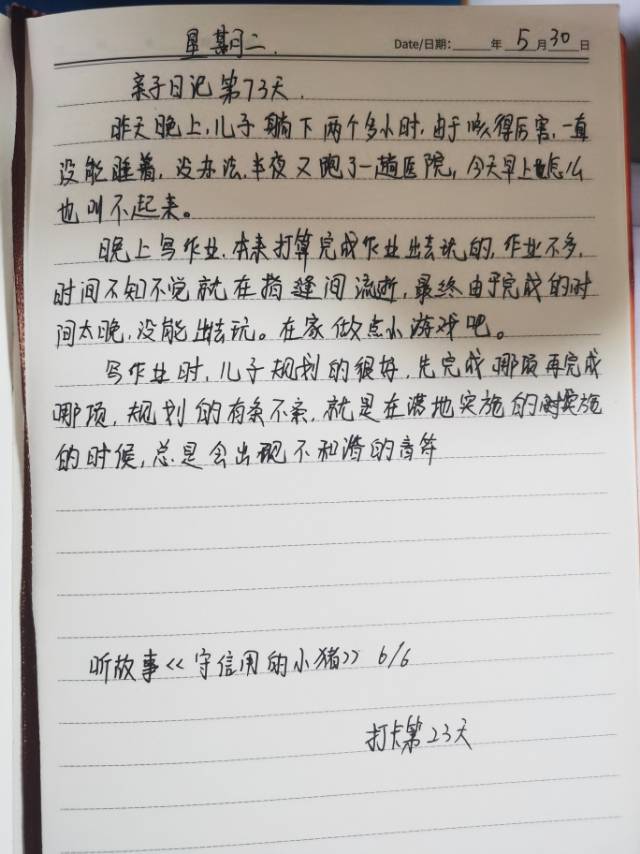 星期二. Date/日期: 年 5 月 30 日
亲子日记第73天.
昨天晚上,儿子躺下两个多小时,由于咳得厉害,一直
没能睡着,没办法,半夜又跑了一趟医院,今天早上怎么
也叫不起来。
晚上写作业,本来打算完成作业出去玩的,作业不多,
时间不知不觉就在指缝间流逝,最终由于完成的时
间太晚,没能出去玩。在家做点小游戏吧。
写作业时,儿子规划的很好,先完成哪项再完成
哪项,规划的有条不紊,就是在落地实施的实施
的时候,总是会出现不和谐的音符
听故事<<守信用的小猪>> 6/6
打卡第23天